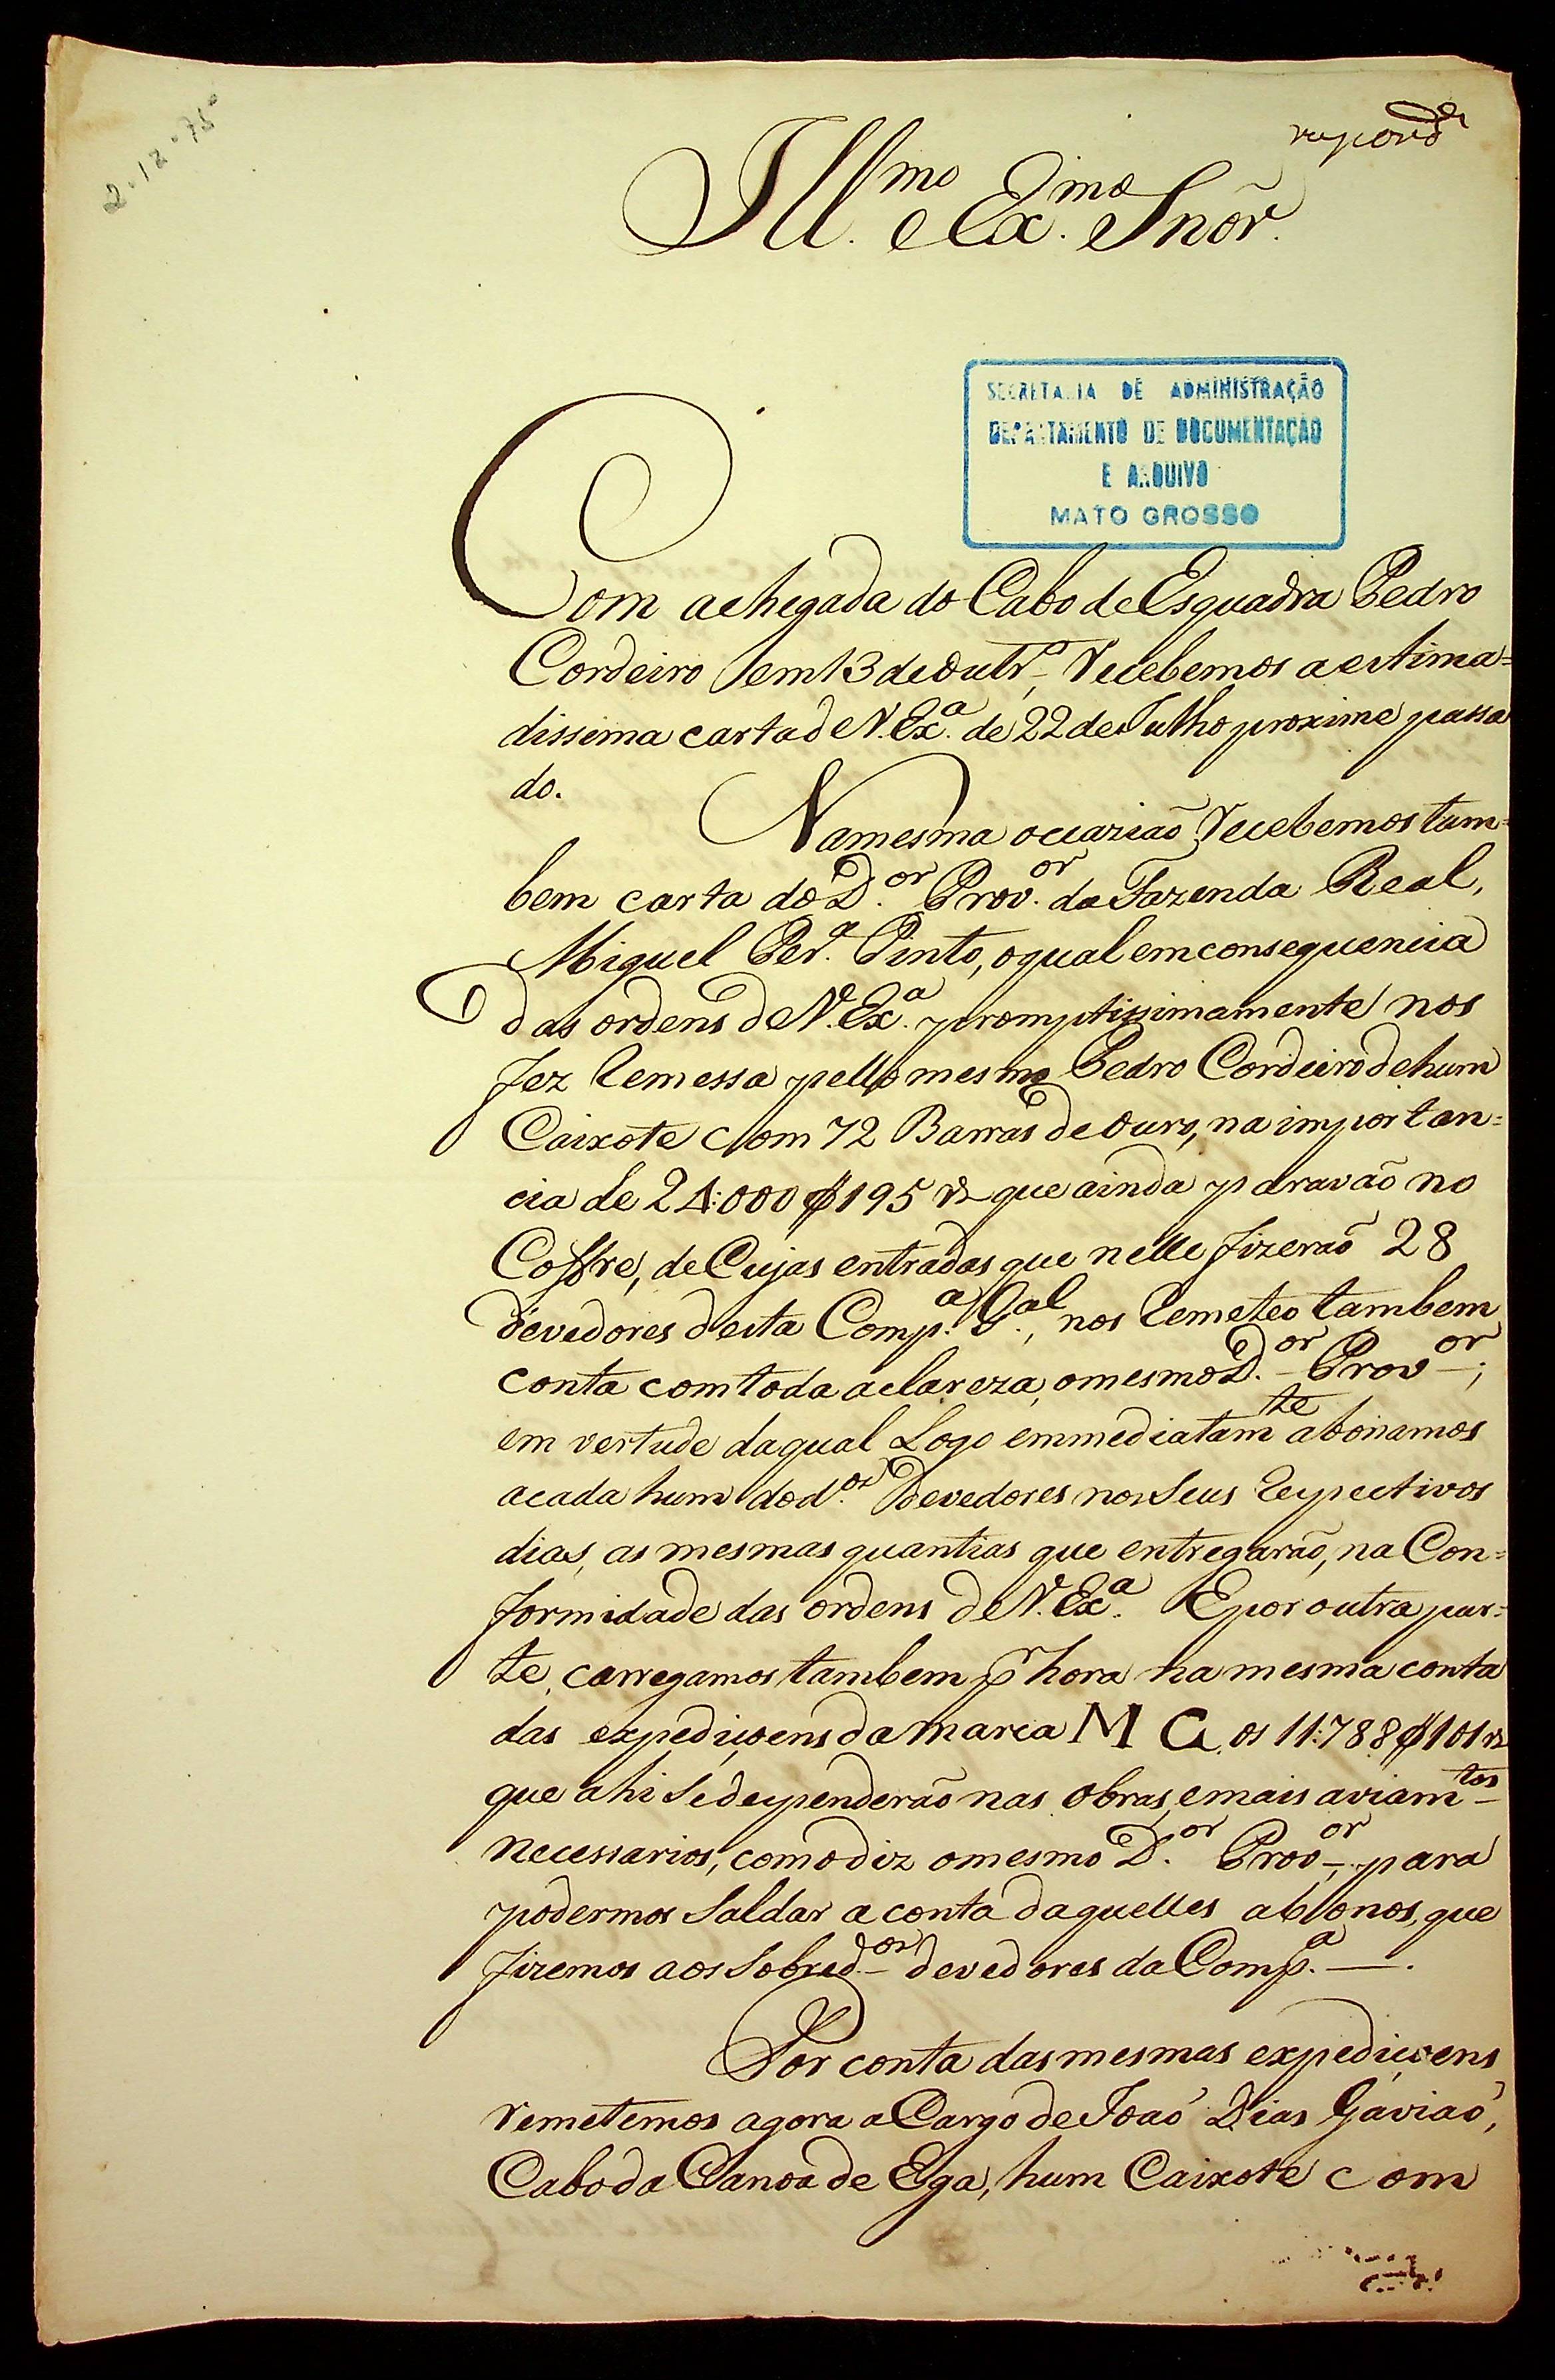 2-12-75
respond.ª
Ill.mo e Ex.mo Snõr.
SECRETARIA DE ADMINISTRAÇÃO
DEPARTAMENTO DE DOCUMENTAÇÃO
E ARQUIVO
MATO GROSSO
Com achegada do Cabo de Esquadra Pedro
Cordeiro em 13 de Outr.º, recebemos a estima=
dissima carta de V. Ex.ª de 22 de Julho proxime passa
do.
Namesma occaziaõ recebemos tam=
bem carta do D.or Prov.or da Fazenda Real,
Miguel Per.ª Pinto, oqual emconsequencia
das ordens de V. Ex.ª promptissimamente nos
fez remessa pello mesmo Pedro Cordeiro de hum
Caixote com 72 Barras de Ouro, na importan=
cia de 24:000$195 rs que ainda paravaõ no
Coffre, de Cujas entradas que nelle fizeraõ 28
devedores desta Comp.ª G.al, nos remeteo tambem
conta comtoda aclareza, omesmo D.or Prov.or;
em vertude daqual Logo emmediatam.te abonamos
acada hum dos d.os Devedores nos Seus respectivos
dias, as mesmas quantias que entregaraõ, na Con=
formidade das ordens de V. Ex.ª E por outra par=
te, carregamos tambem p.r hora na mesma conta
das expediçoens da marca M G. os 11:788$101 rs
que ahi Se despenderaõ nas obras, emais aviam.tos
necessarios, comodiz omesmo D.or Prov.or, para
podermos Saldar a conta daquelles abonos, que
fizemos aos Sobred.os devedores da Comp.ª —.
Por conta dasmesmas expediçoens
remetemos agora a Cargo de Joaõ Dias Gaviaõ,
Cabo da Canoa de Ega, hum Caixote com